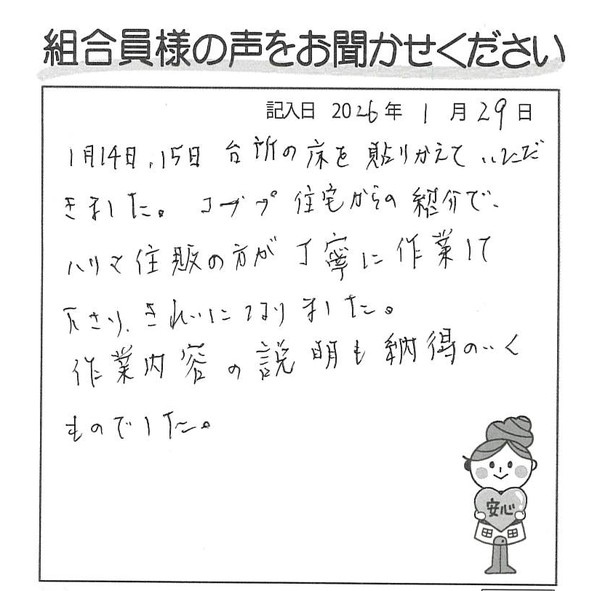 組合員様の声をお聞かせください
記入日 2026年 1月29日
1月14日,15日 台所の床を貼りかえていただ
きました。コープ住宅からの紹介で、
ハリマ住販の方が丁寧に作業して
下さり、きれいになりました。
作業内容の説明も納得のいく
ものでした。
安心